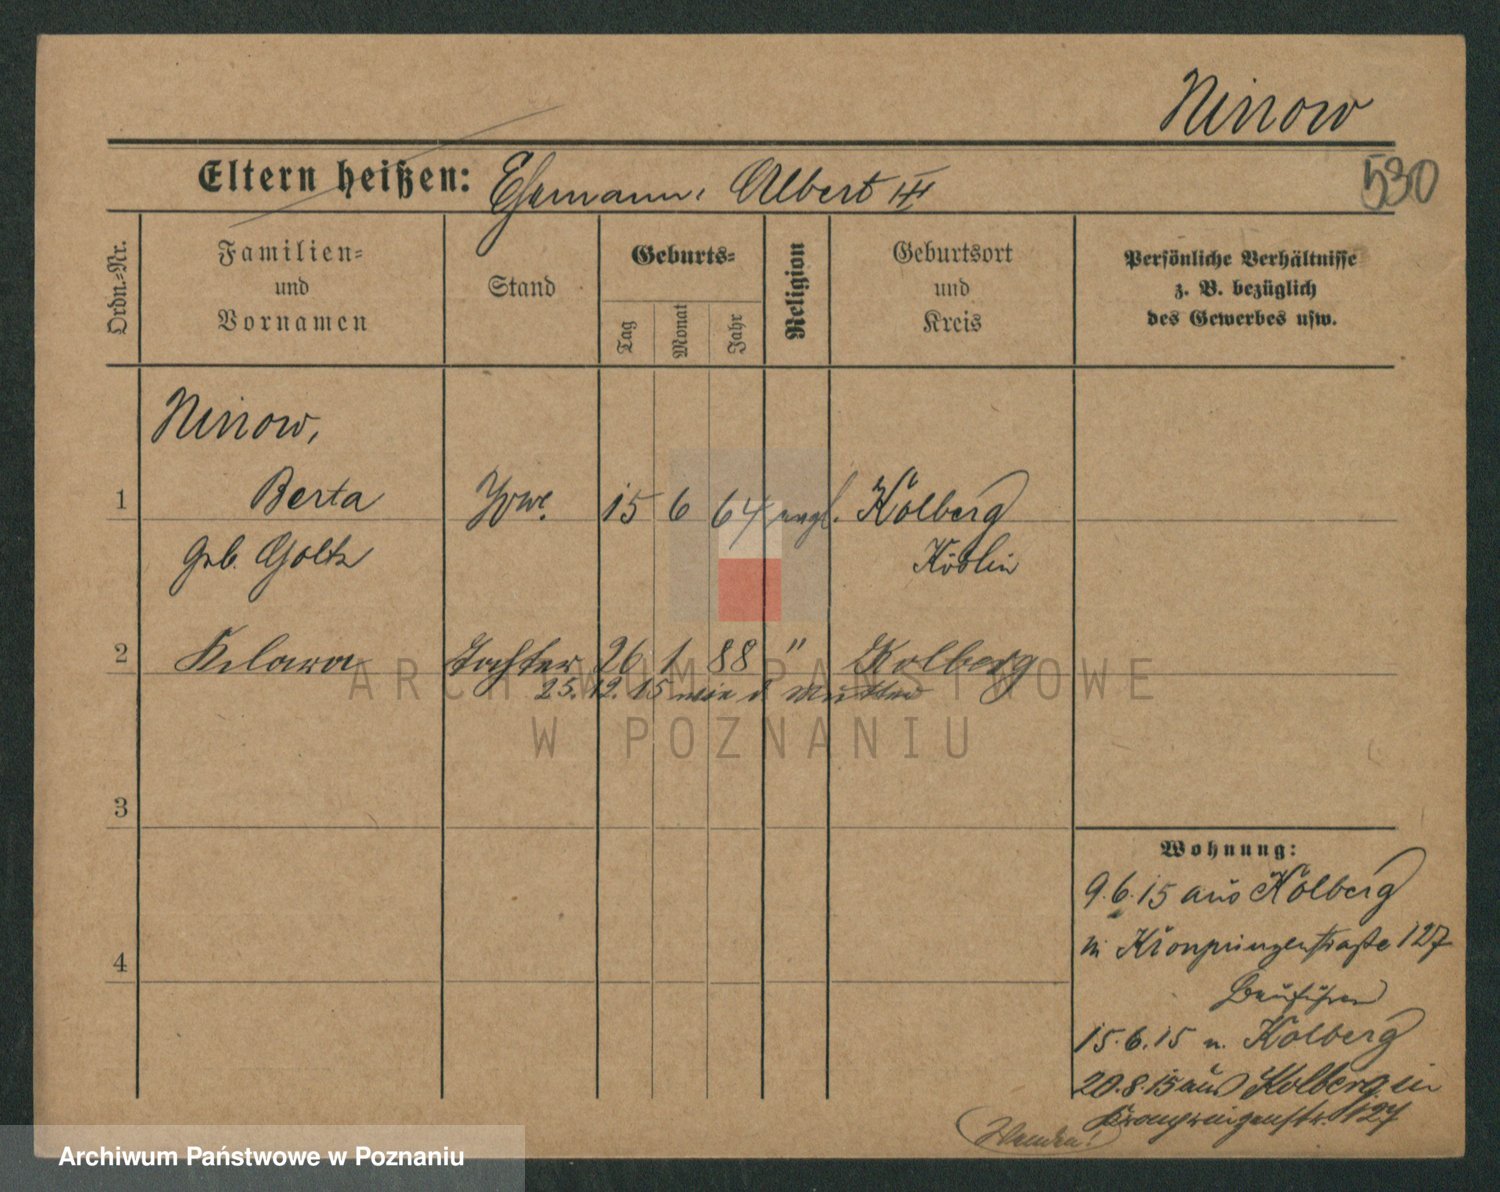 Ninow
530
Eltern heißen: Ehemann: Albert III
Ordn.-Nr.
Familien- und Vornamen
Stand
Geburts-
Tag
Monat
Jahr
Religion
Geburtsort und Kreis
Persönliche Verhältnisse
z. B. bezüglich
des Gewerbes usw.
Ninow,
1 Berta Wwe. 15 6 64 evgl. Kolberg
geb. Goltz Köslin
2 Klara Tochter 26 1 88 " Kolberg
25.12.15 wie d Mutter
3
4
Wohnung:
9.6.15 aus Kolberg
in Kronprinzenstraße 127
15.6.15 n. Kolberg
20.8.15 aus Kolberg in
Kronprinzenstr. 127
Wenden!
ARCHIWUM PAŃSTWOWE
W POZNANIU
Archiwum Państwowe w Poznaniu